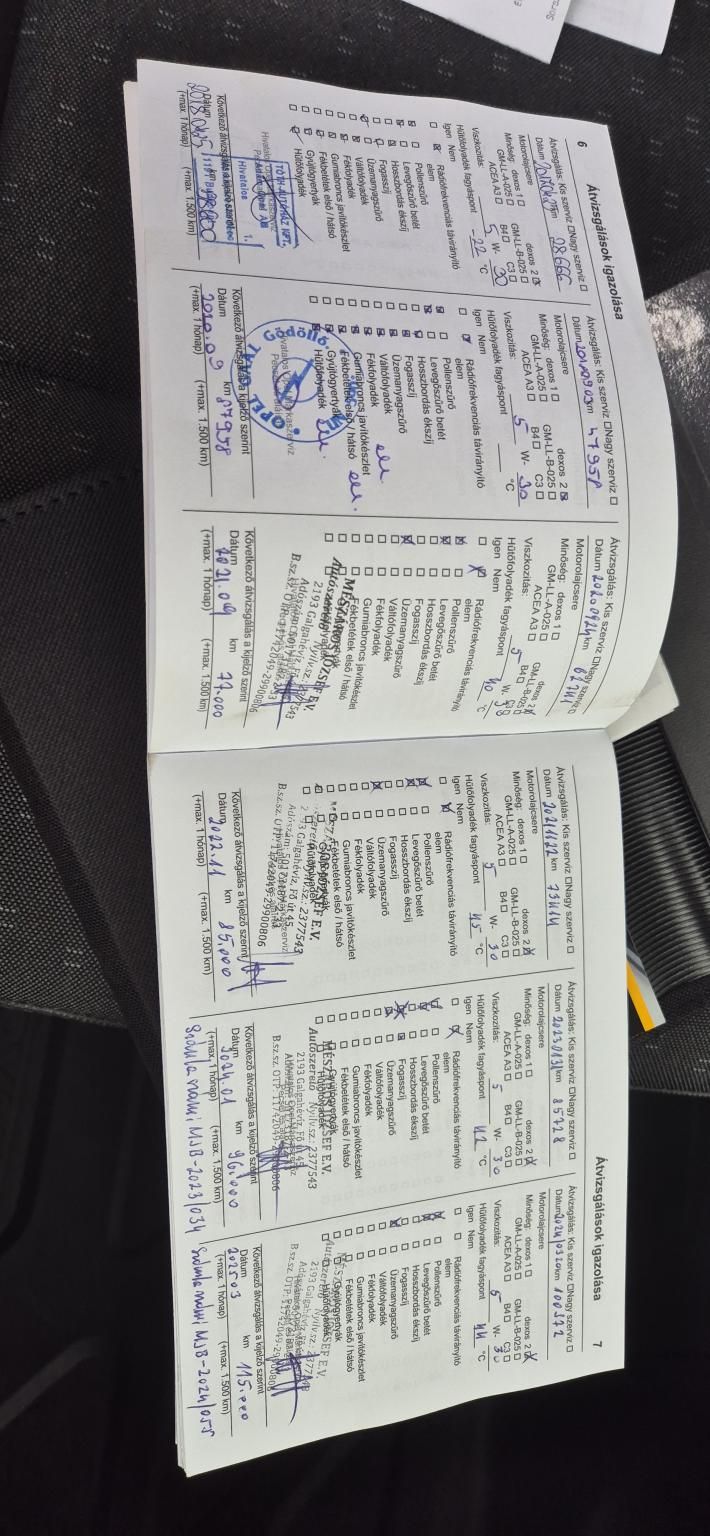 6
Átvizsgálások igazolása
Átvizsgálás: Kis szerviz □ Nagy szerviz □
Dátum km 28666
Motorolajcsere
Minőség: dexos 1 □ dexos 2 ☒
GM-LL-A-025 □ GM-LL-B-025 □
ACEA A3 □ B4 □ C3 □
Viszkozitás: 5 W- 30
Hűtőfolyadék fagyáspont -22 °C
Igen Nem
Rádiófrekvenciás távirányító
elem
Pollenszűrő
Levegőszűrő betét
Hosszbordás ékszíj
Fogasszíj
Üzemanyagszűrő
Váltófolyadék
Fékfolyadék
Gumiabroncs javítókészlet
Fékbetétek első / hátsó
Gyújtógyertyák
Hűtőfolyadék
TÓTH-AUTÓHÁZ KFT.
Következő átvizsgálás a kijelző szerint
Dátum km
(+max. 1 hónap) (+max. 1.500 km)
Átvizsgálás: Kis szerviz □ Nagy szerviz □
Dátum km 47958
Motorolajcsere
Minőség: dexos 1 □ dexos 2 ☒
GM-LL-A-025 □ GM-LL-B-025 □
ACEA A3 □ B4 □ C3 □
Viszkozitás: 5 W- 30
Hűtőfolyadék fagyáspont °C
Igen Nem
Rádiófrekvenciás távirányító
elem
Pollenszűrő
Levegőszűrő betét
Hosszbordás ékszíj
Fogasszíj
Üzemanyagszűrő
Váltófolyadék
Fékfolyadék
Gumiabroncs javítókészlet
Fékbetétek első / hátsó
Gyújtógyertyák
Hűtőfolyadék
Gödöllő
OPEL
Következő átvizsgálás a kijelző szerint
Dátum km
2020.09 87958
(+max. 1 hónap) (+max. 1.500 km)
Átvizsgálás: Kis szerviz □ Nagy szerviz □
Dátum 20200924 km 62741
Motorolajcsere
Minőség: dexos 1 □ dexos 2 ☒
GM-LL-A-025 □ GM-LL-B-025 □
ACEA A3 □ B4 □ C3 □
Viszkozitás: 5 W- 30
Hűtőfolyadék fagyáspont 40 °C
Igen Nem
Rádiófrekvenciás távirányító
elem
Pollenszűrő
Levegőszűrő betét
Hosszbordás ékszíj
Fogasszíj
Üzemanyagszűrő
Váltófolyadék
Fékfolyadék
Gumiabroncs javítókészlet
Fékbetétek első / hátsó
MÉSZÁROS JÓZSEF E.V.
Autószerelő
2193 Galgahévíz,
Következő átvizsgálás a kijelző szerint
Dátum km
2021.09 77.000
(+max. 1 hónap) (+max. 1.500 km)
7
Átvizsgálások igazolása
Átvizsgálás: Kis szerviz □ Nagy szerviz □
Dátum 20211122 km 73414
Motorolajcsere
Minőség: dexos 1 □ dexos 2 ☒
GM-LL-A-025 □ GM-LL-B-025 □
ACEA A3 □ B4 □ C3 □
Viszkozitás: 5 W- 30
Hűtőfolyadék fagyáspont 45 °C
Igen Nem
Rádiófrekvenciás távirányító
elem
Pollenszűrő
Levegőszűrő betét
Hosszbordás ékszíj
Fogasszíj
Üzemanyagszűrő
Váltófolyadék
Fékfolyadék
Gumiabroncs javítókészlet
Fékbetétek első / hátsó
2193 Galgahévíz, Fő út 45.
Nyilv.sz.: 2377543
Következő átvizsgálás a kijelző szerint
Dátum km
2022.11 85.000
(+max. 1 hónap) (+max. 1.500 km)
Átvizsgálás: Kis szerviz □ Nagy szerviz □
Dátum 20230131 km 85728
Motorolajcsere
Minőség: dexos 1 □ dexos 2 ☒
GM-LL-A-025 □ GM-LL-B-025 □
ACEA A3 □ B4 □ C3 □
Viszkozitás: 5 W- 30
Hűtőfolyadék fagyáspont 42 °C
Igen Nem
Rádiófrekvenciás távirányító
elem
Pollenszűrő
Levegőszűrő betét
Hosszbordás ékszíj
Fogasszíj
Üzemanyagszűrő
Váltófolyadék
Fékfolyadék
Gumiabroncs javítókészlet
Fékbetétek első / hátsó
MÉSZÁROS JÓZSEF E.V.
Autószerelő Nyilv.sz.: 2377543
2193 Galgahévíz, Fő út 45.
Következő átvizsgálás a kijelző szerint
Dátum km
2024.01 96.000
(+max. 1 hónap) (+max. 1.500 km)
MJB-2023/034
Átvizsgálás: Kis szerviz □ Nagy szerviz □
Dátum 20240320 km 100372
Motorolajcsere
Minőség: dexos 1 □ dexos 2 ☒
GM-LL-A-025 □ GM-LL-B-025 □
ACEA A3 □ B4 □ C3 □
Viszkozitás: 5 W- 30
Hűtőfolyadék fagyáspont 44 °C
Igen Nem
Rádiófrekvenciás távirányító
elem
Pollenszűrő
Levegőszűrő betét
Hosszbordás ékszíj
Fogasszíj
Üzemanyagszűrő
Váltófolyadék
Fékfolyadék
Gumiabroncs javítókészlet
Fékbetétek első / hátsó
Következő átvizsgálás a kijelző szerint
Dátum km
2025 03 115.000
(+max. 1 hónap) (+max. 1.500 km)
MJB-2024/055